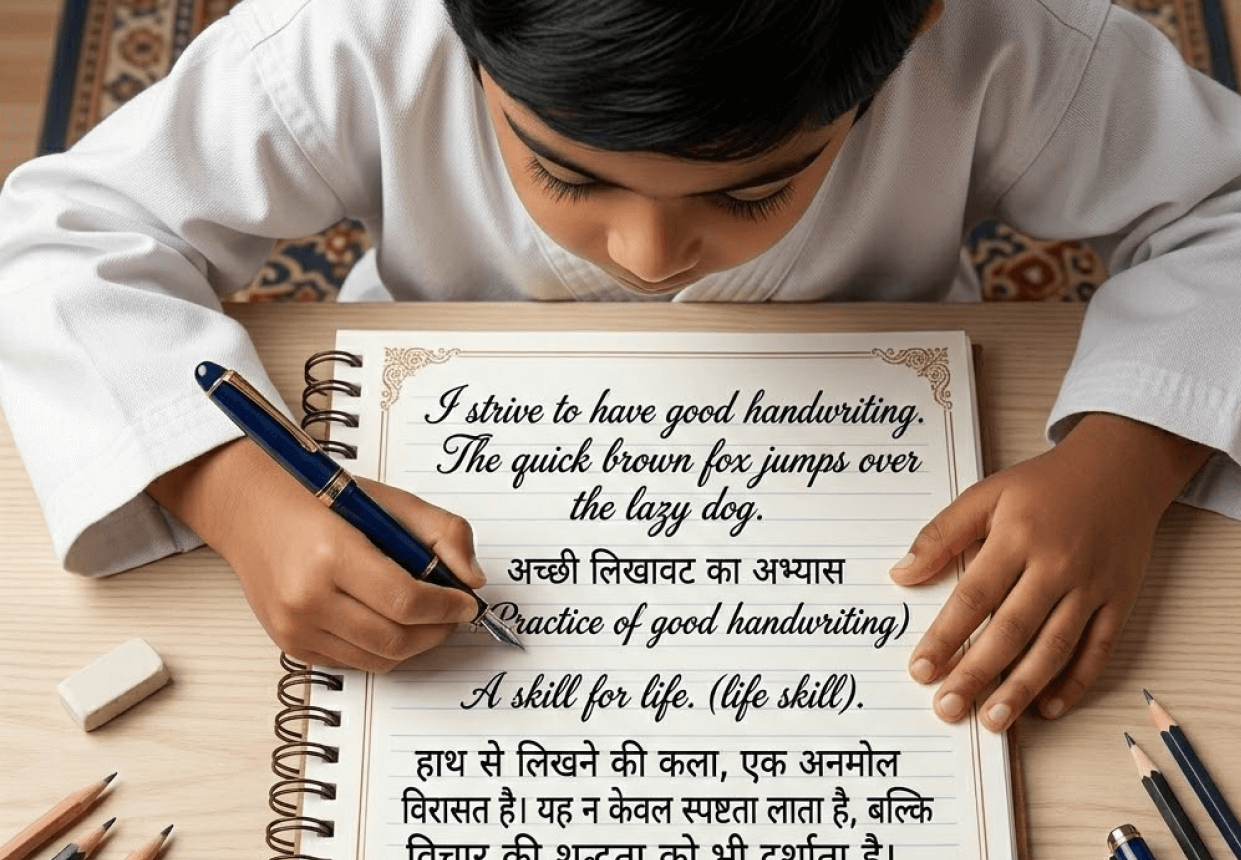 I strive to have good handwriting.
The quick brown fox jumps over
the lazy dog.
अच्छी लिखावट का अभ्यास
(Practice of good handwriting)
A skill for life. (life skill).
हाथ से लिखने की कला, एक अनमोल
विरासत है। यह न केवल स्पष्टता लाता है, बल्कि
विचार की शुद्धता को भी दर्शाता है।